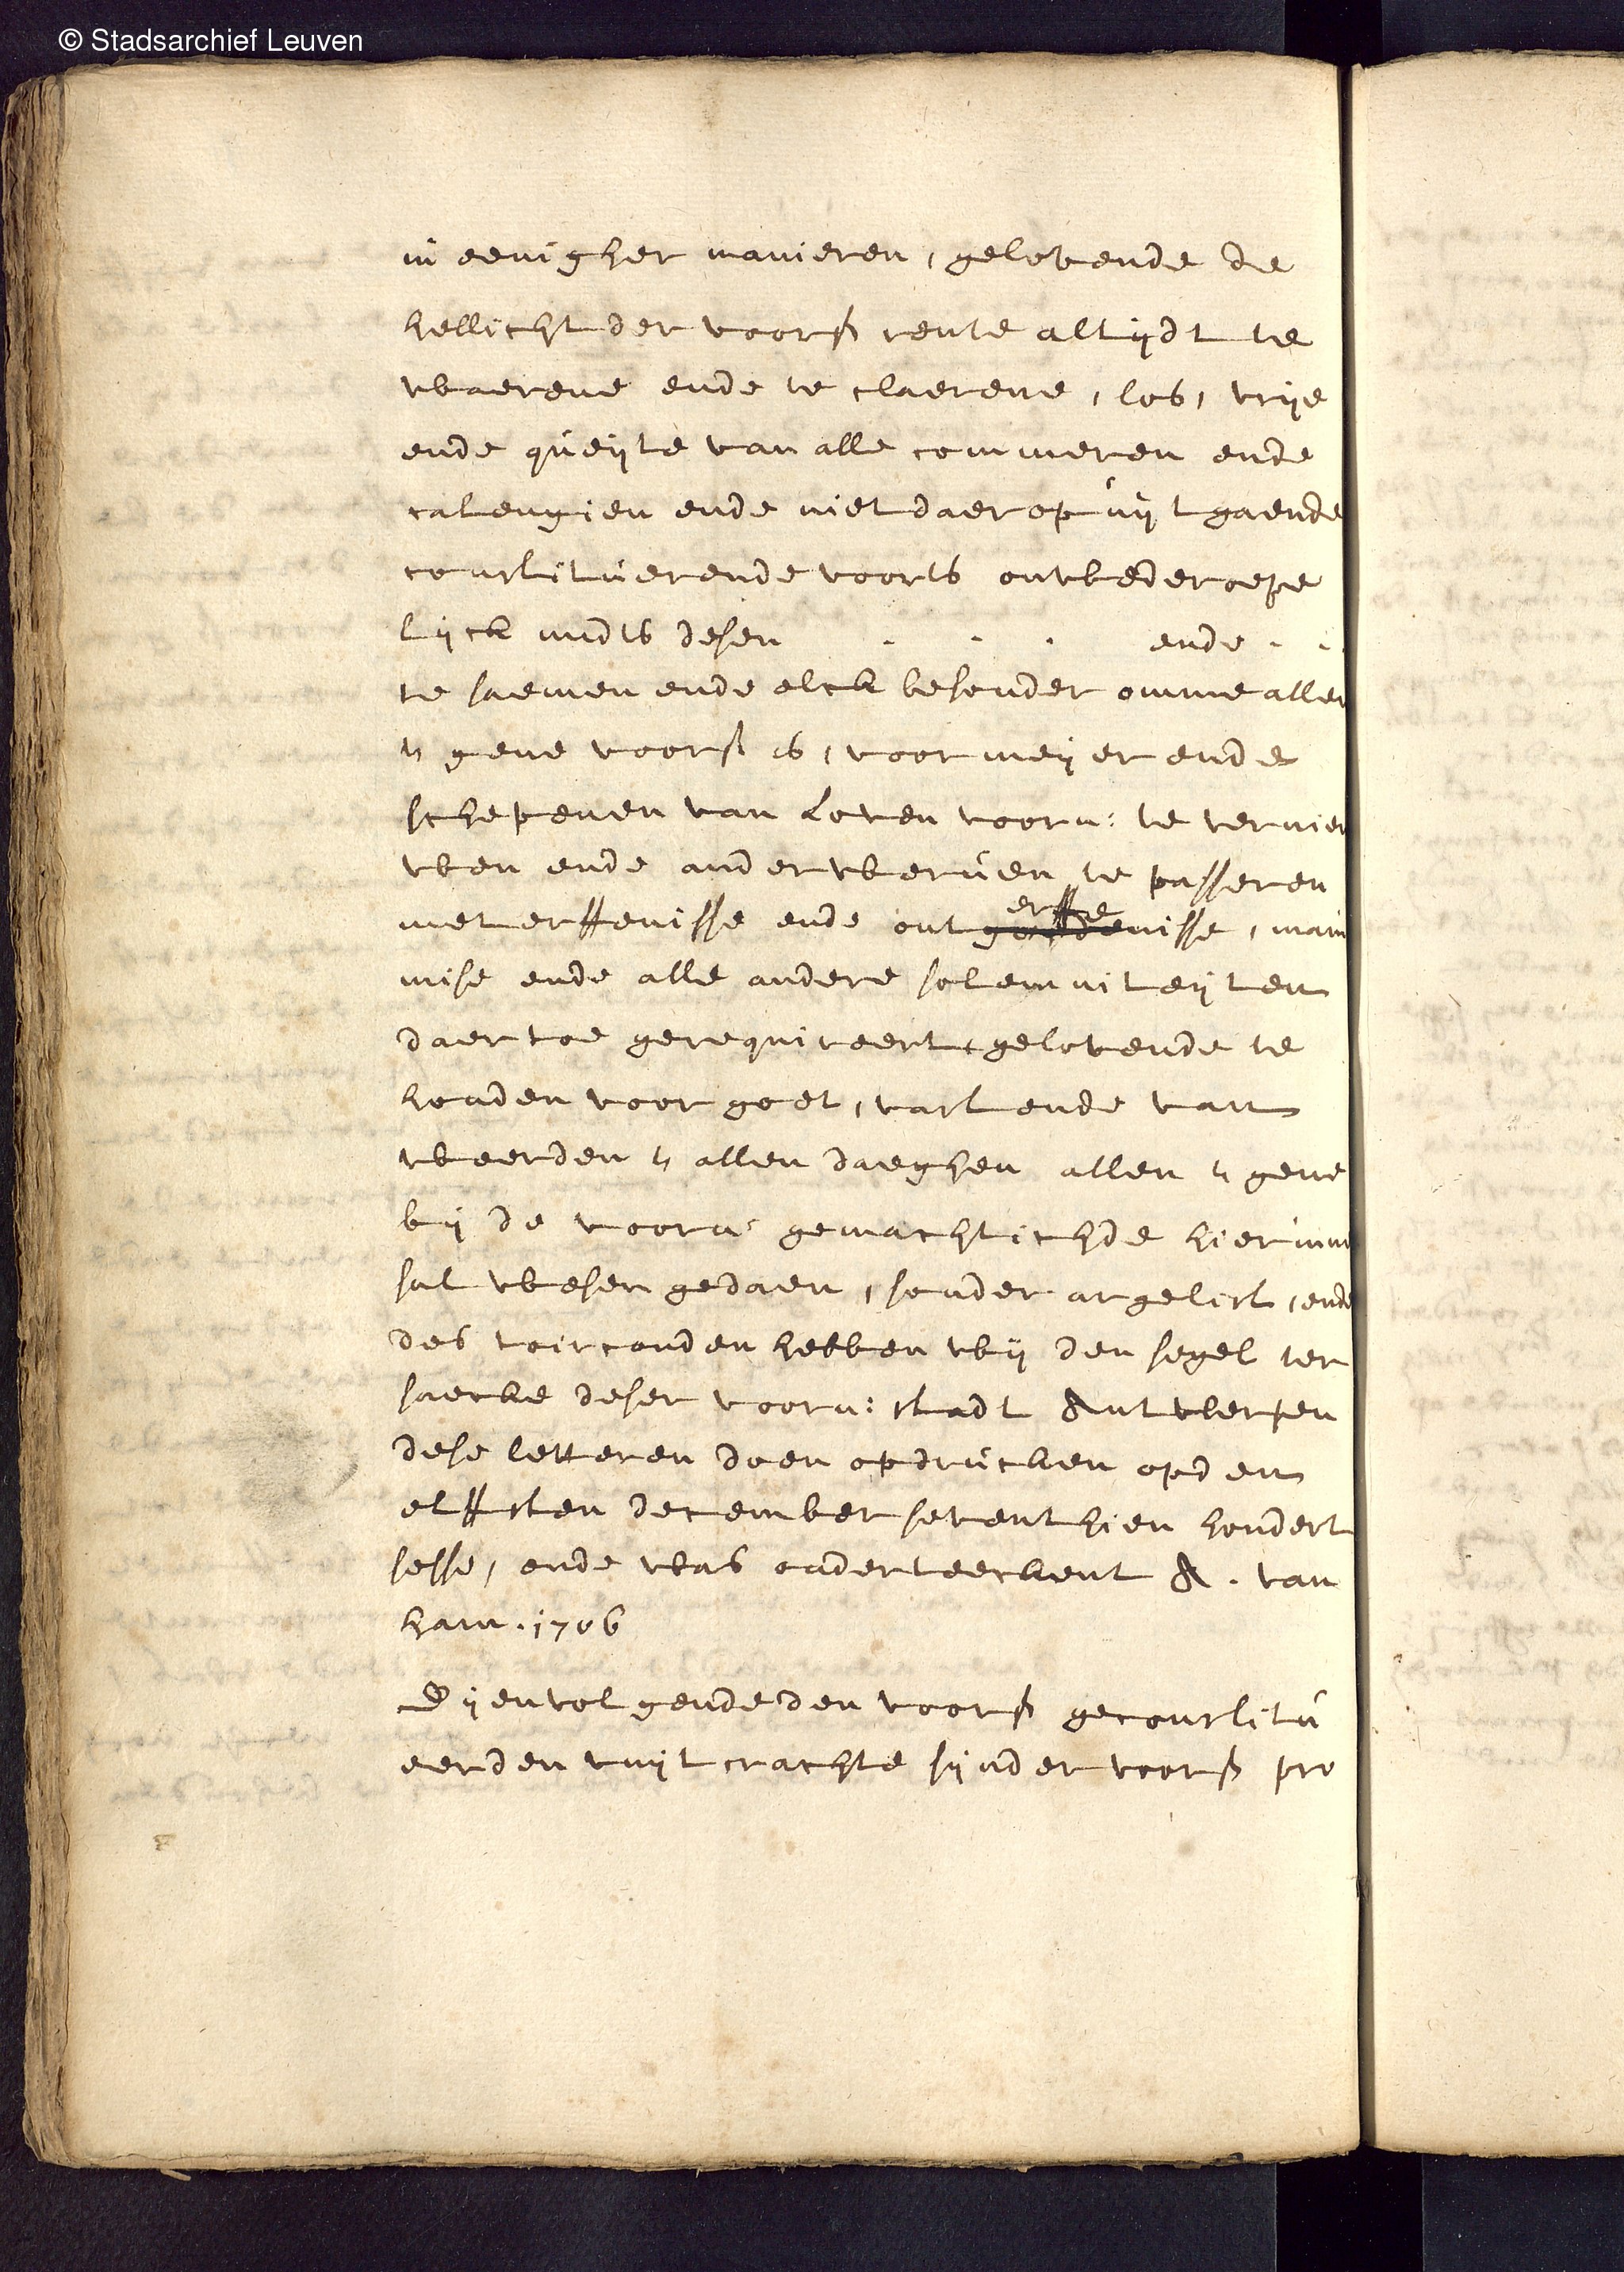 © Stadsarchief Leuven
in eenigher manieren, gelovende de
hellicht der voors rente altijdt te
waerene ende te claerene, los, vrije
ende queijte van alle commeren ende
calengien ende niet daer op uijtgaende
constituerende voorts onwederoepe
lijck midts desen . . . ende . .
te saemen ende elck besonder omme allen
tgene voors is, voor meijer ende
schepenen van Loven voorn: te vernieu
wen ende anderwervens te passeren
met erffenisse ende ont goedenisse, mani
erffe
misse ende alle andere solemniteijten
daer toe gerequireert gelovende te
houden voor goet, vast ende van
weerden tallen daeghen allen tgene
bij de voorn: gemachtichde hierinne
sal wesen gedaen, sonder argelist, ende
des toirconden hebben wij den segel ter
saecke deser voorn: stadt Antwerpen
dese letteren doen opdrucken opden
elffsten december seventhien hondert
sesse, ende was onderteeckent A. van
ham. 1706
Dijenvolgende den voors geconstitu
eerden vuijt crachte sijnder voors pro